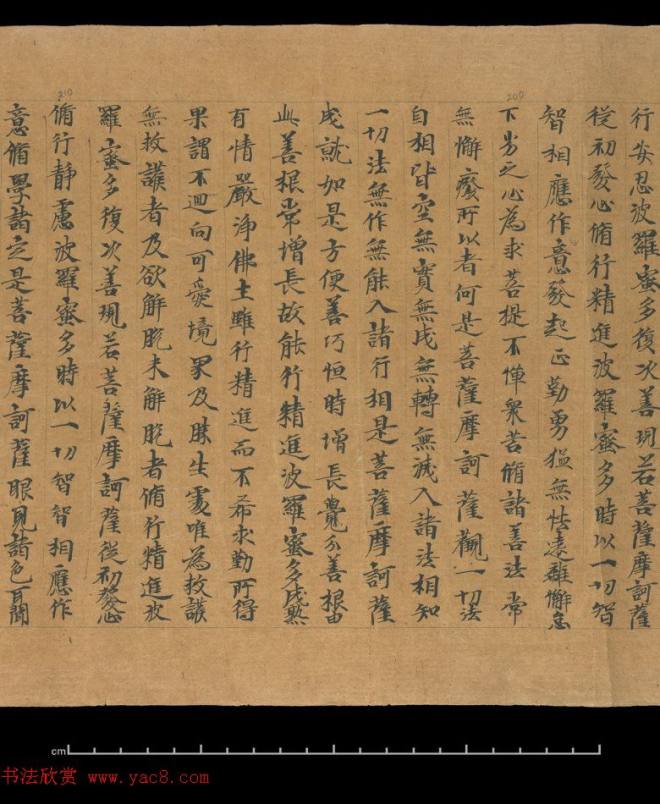 行安忍波羅蜜多復次善現若菩薩摩訶薩
從初發心脩行精進波羅蜜多時以一切智
智相應作意發起正勤勇猛無怯遠離懈怠
下劣之心為求菩提不憚衆苦脩諸善法常
無懈癈所以者何是菩薩摩訶薩觀一切法
自相皆空無實無成無轉無滅入諸法相知
一切法無作無能入諸行相是菩薩摩訶薩
成就如是方便善巧恒時增長覺分善根由
此善根常增長故能行精進波羅蜜多成熟
有情嚴淨佛土雖行精進而不希求勤所得
果謂不迴向可愛境界及勝生處唯為救護
無救護者及欲解脫未解脫者脩行精進波
羅蜜多復次善現若菩薩摩訶薩從初發心
脩行靜慮波羅蜜多時以一切智智相應作
意脩學諸定是菩薩摩訶薩眼見諸色耳聞
209
210
cm
书法欣赏 www.yac8.com